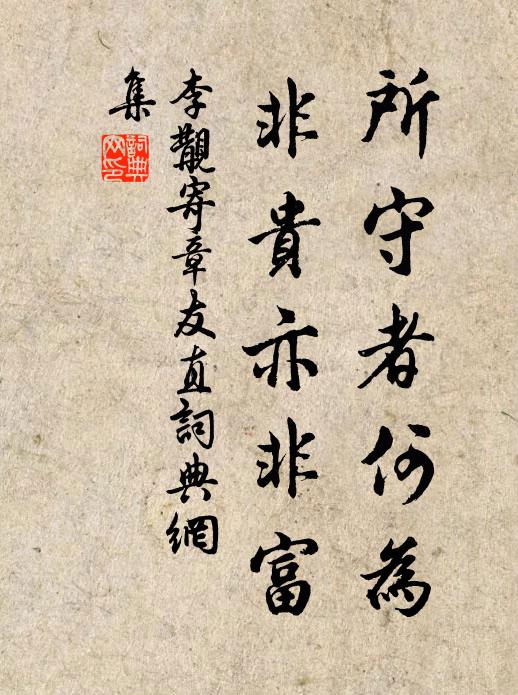 所守者何為
非貴亦非富
李觀寄章友直詞典網
集
詞典
网印